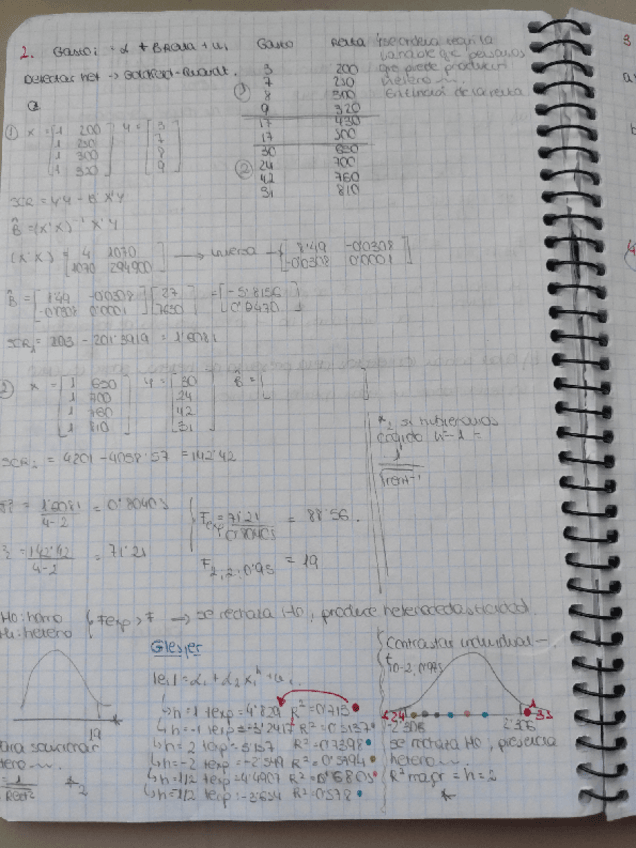 2. Gasto i = α + β Renta + ui
Detectar het → Goldfeld-Quandt.
Gasto Renta
3 200
7 250
8 300
9 320
17 430
17 500
30 650
24 700
42 760
31 810
① ②
se ordena según la
variable que pensamos
que puede producir
hetero
En función de la renta
① X = [1 200 Y = [3
1 250 7
1 300 8
1 320] 9]
SCR = Y'Y - B'X'Y
B̂ = (X'X)⁻¹ X'Y
(X'X) = [4 1070
1070 294900] → inversa = [8'49 -0'0308
-0'0308 0'0001]
-0'0308] [27
-0'0308 0'0001] 7630] = [-5'8156
0'0470]
SCR₁ = 203 - 201'3919 = 1'6081
② X = [1 650 Y = [30 B̂ = [ ]
1 700 24
1 760 42
1 810] 31]
SCR₂ = 4201 - 4058'57 = 142'42
si hubieramos
cogido h=-1 =
1'6081
4-2 = 0'80405
142'42
4-2 = 71'21
Fexp = 71'21
0'80405 = 88'56.
F2;2;0'95 = 19
Ho: homo
H1: hetero
Fexp > F → se rechaza Ho, produce heterocedasticidad.
19
Para solucionar
hetero
Glesjer
|ei| = α1 + α2 xi^h + ui
h=1 texp = 4'829 R² = 0'715
h=-1 texp = -3'2417 R² = 0'5137
h=2 texp = 5'157 R² = 0'7398
h=-2 texp = -2'549 R² =
h=1/2 texp = 4'4907 R² = 0'6805
texp = -3'634 R² = 0'578
Contrastar individual
t10-2, 0'975
-2'306 2'306
se rechaza Ho, presencia
hetero
R² mayor = h=2